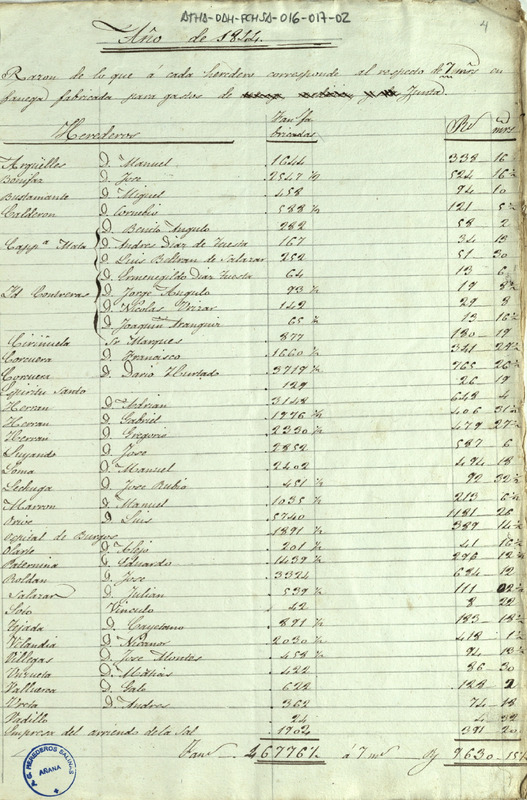 ATHA-DAH-FCHSA-016-017-02
4
Año de 1844.
Razon de lo que á cada heredero corresponde al respecto de 7 mrs en
fanega fabricada para gastos de Junta
Herederos Fans fabricadas Rs mrs
Argüelles D. Manuel 1644 338 16
Bonifaz D. Jose 2547 ½ 524 16 ½
Bustamante D. Miguel 458 94 10
Calderon D. 588 ½ 121 5 ½
D. Benito Angulo 282 58 2
Capp.ª Mata D. Andres Diaz de Tuesta 167 34 13
D. Luis Beltran de Salazar 252 51 30
D. Ermenegildo Diaz Tuesta 64 13 6
Id Contreras D. Jorge Angulo 93 ½ 19 8 ½
D. Nicolas Urizar 142 29 8
D. Joaquin 65 ½ 13 16 ½
Ciriñuela Sr Marques 877 180 19
Corcuera D. Francisco 1660 ½ 341 29 ½
Corcuera D. Dario Hurtado 3719 ½ 765 26 ½
Espiritu Santo 129 26 19
Herran D. Adrian 3148 648 4
Herran D. Gabriel 1976 ½ 406 31 ½
Herran D. Gregorio 2330 ½ 479 27 ½
Luyando D. Jose 2852 587 6
Loma D. Manuel 2402 494 18
Lechuga D. Jose Rubio 451 ½ 92 32 ½
Marron D. Manuel 1035 ½ 213 6 ½
Orive D. Luis 5740 1181 26
Ospital de Burgos 1891 ½ 389 14 ½
Olarte D. Alejo 201 ½ 41 16 ½
Paternina D. Eduardo 1439 ½ 296 12 ½
Roldan D. Jose 3324 684 12
Salazar D. Julian 539 ½ 111 02 ½
Sojo Vinculo 42 8 22
Tejada D. Cayetano 891 ½ 183 18 ½
Velandia D. Nicanor 2030 ½ 418 1 ½
Villegas D. Jose Montes 458 ½ 94 13 ½
D. Matias 422 86 30
Valluerca D. Galo 622 128 2
Urcia D. Andres 362 74 18
Vadillo 24 4 32
Empresa del arriendo de la Sal 1902 391 20
Fans 46776½ á 7 ms Rs 9630 15½
C. G. HEREDEROS SALINAS
AÑANA